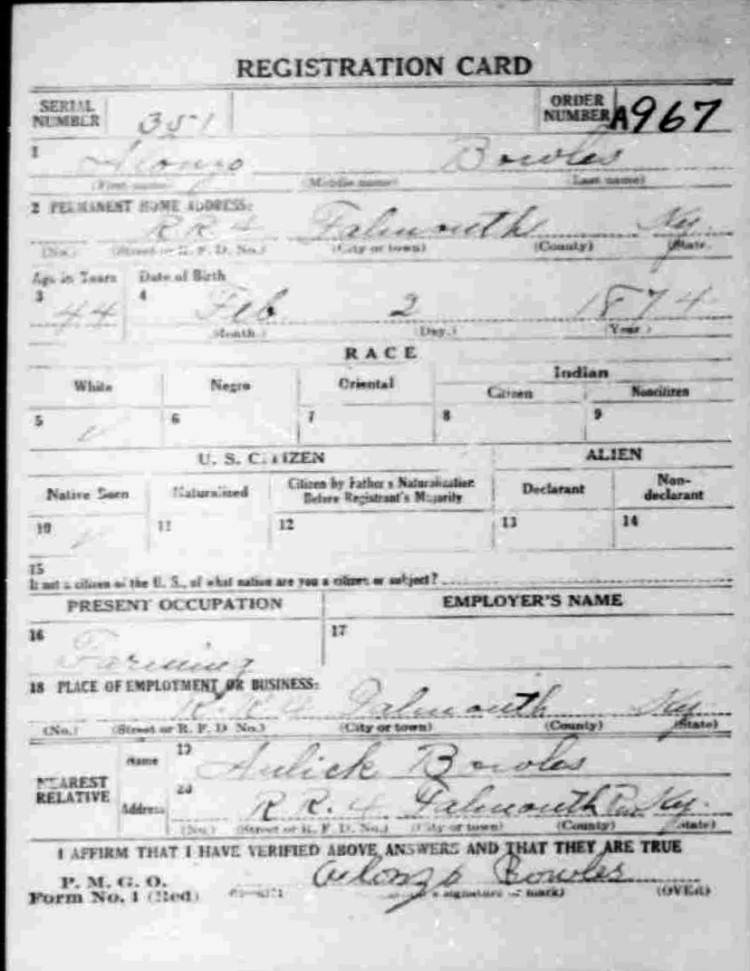 REGISTRATION CARD
SERIAL NUMBER 351 ORDER NUMBER A967
1 Alonzo Bowles
(First name) (Middle name) (Last name)
2 PERMANENT HOME ADDRESS:
RR 4 Falmouth Ky
(No.) (Street or R. F. D. No.) (City or town) (County) (State)
Age in Years Date of Birth
3 44 4 Feb 2 1874
(Month.) (Day.) (Year.)
RACE
White Negro Oriental Indian
Citizen Noncitizen
5 ✓ 6 7 8 9
U. S. CITIZEN ALIEN
Native Born Naturalized Citizen by Father's Naturalization Before Registrant's Majority Declarant Non-declarant
10 ✓ 11 12 13 14
15
If not a citizen of the U. S., of what nation are you a citizen or subject?
PRESENT OCCUPATION EMPLOYER'S NAME
16 Farming 17
18 PLACE OF EMPLOYMENT OR BUSINESS:
R R 4 Falmouth Ky
(No.) (Street or R. F. D. No.) (City or town) (County) (State)
NEAREST RELATIVE
Name 19 Aulick Bowles
Address 20 R R. 4 Falmouth Ky.
(No.) (Street or R. F. D. No.) (City or town) (County) (State)
I AFFIRM THAT I HAVE VERIFIED ABOVE ANSWERS AND THAT THEY ARE TRUE
P. M. G. O.
Form No. 1 (Red) Alonzo Bowles
signature or mark) (OVER)